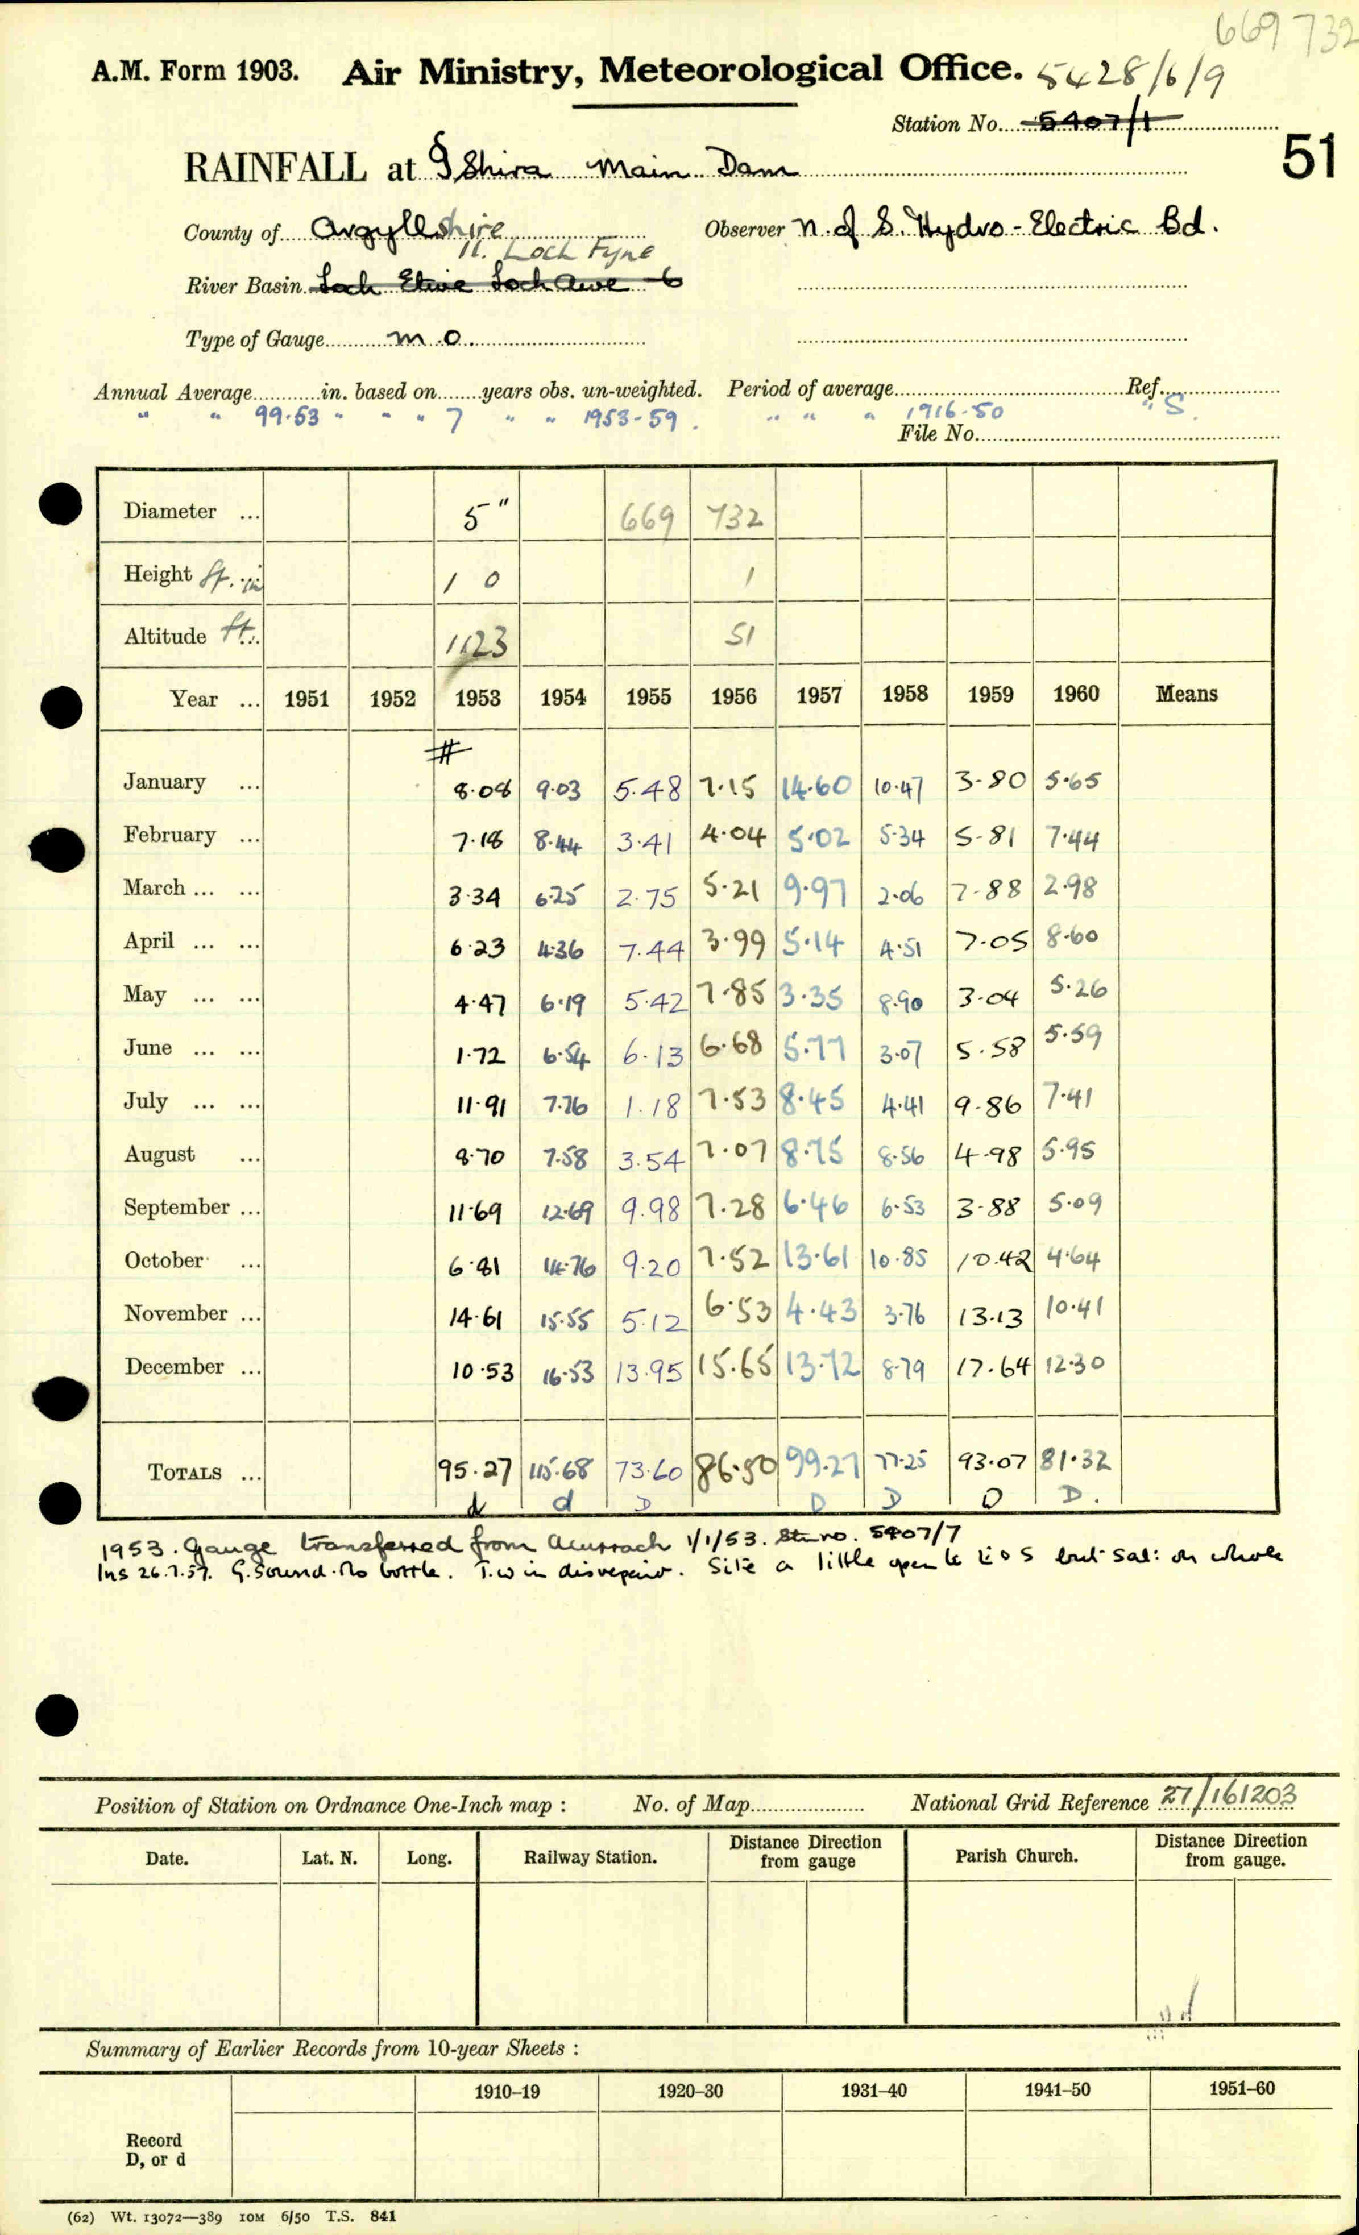 669 732
A.M. Form 1903. Air Ministry, Meteorological Office. 5428/6/9
Station No. 5407/1
51
RAINFALL at § Shira Main Dam
County of Argyllshire Observer N. of S. Hydro-Electric Bd.
11. Loch Fyne
River Basin Loch Etive Loch Awe 6
Type of Gauge M O
Annual Average in. based on years obs. un-weighted. Period of average Ref.
" " 99.53 " " " 7 " " 1953-59. " " " 1916-50 " S.
File No.
Diameter ... 5" 669 732
Height ft. in 1 0 1
Altitude ft. 1123 51
Year ... 1951 1952 1953 1954 1955 1956 1957 1958 1959 1960 Means
#
January ... 8.08 9.03 5.48 7.15 14.60 10.47 3.80 5.65
February ... 7.18 8.44 3.41 4.04 5.02 5.34 5.81 7.44
March ... ... 3.34 6.25 2.75 5.21 9.97 2.06 7.88 2.98
April ... ... 6.23 4.36 7.44 3.99 5.14 4.51 7.05 8.60
May ... ... 4.47 6.19 5.42 7.85 3.35 8.90 3.04 5.26
June ... ... 1.72 6.54 6.13 6.68 5.77 3.07 5.58 5.59
July ... ... 11.91 7.76 1.18 7.53 8.45 4.41 9.86 7.41
August ... 8.70 7.58 3.54 7.07 8.75 8.56 4.98 5.95
September ... 11.69 12.69 9.98 7.28 6.46 6.53 3.88 5.09
October ... 6.81 14.76 9.20 7.52 13.61 10.85 10.42 4.64
November ... 14.61 15.55 5.12 6.53 4.43 3.76 13.13 10.41
December ... 10.53 16.53 13.95 15.65 13.72 8.79 17.64 12.30
TOTALS ... 95.27 115.68 73.60 86.50 99.27 77.25 93.07 81.32
d d D D D D D.
1953. Gauge transferred from 1/1/53. St. no. 5407/7
Ins 26.7.57. G. Sound. No bottle. T.W in disrepair. Site a little open to E & S but sat: on whole
Position of Station on Ordnance One-Inch map : No. of Map National Grid Reference 27/161203
Date. Lat. N. Long. Railway Station. Distance Direction from gauge Parish Church. Distance Direction from gauge.
Summary of Earlier Records from 10-year Sheets :
1910–19 1920–30 1931–40 1941–50 1951–60
Record
D, or d
(62) Wt. 13072—389 10M 6/50 T.S. 841